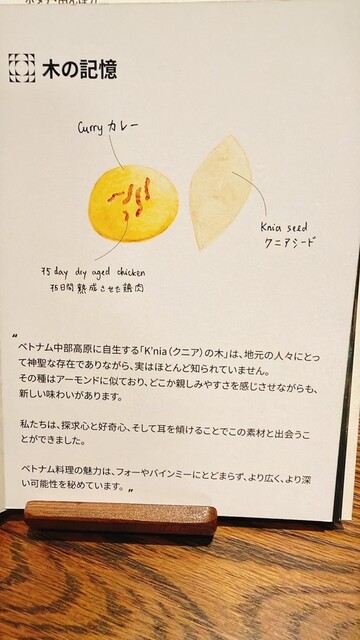 木の記憶
Curry カレー
Knia seed
クニアシード
75 day dry aged chicken
75日間熟成させた鶏肉
"
ベトナム中部高原に自生する「K'nia（クニア）の木」は、地元の人々にとっ
て神聖な存在でありながら、実はほとんど知られていません。
その種はアーモンドに似ており、どこか親しみやすさを感じさせながらも、
新しい味わいがあります。
私たちは、探求心と好奇心、そして耳を傾けることでこの素材と出会うこ
とができました。
ベトナム料理の魅力は、フォーやバインミーにとどまらず、より広く、より深
い可能性を秘めています。"